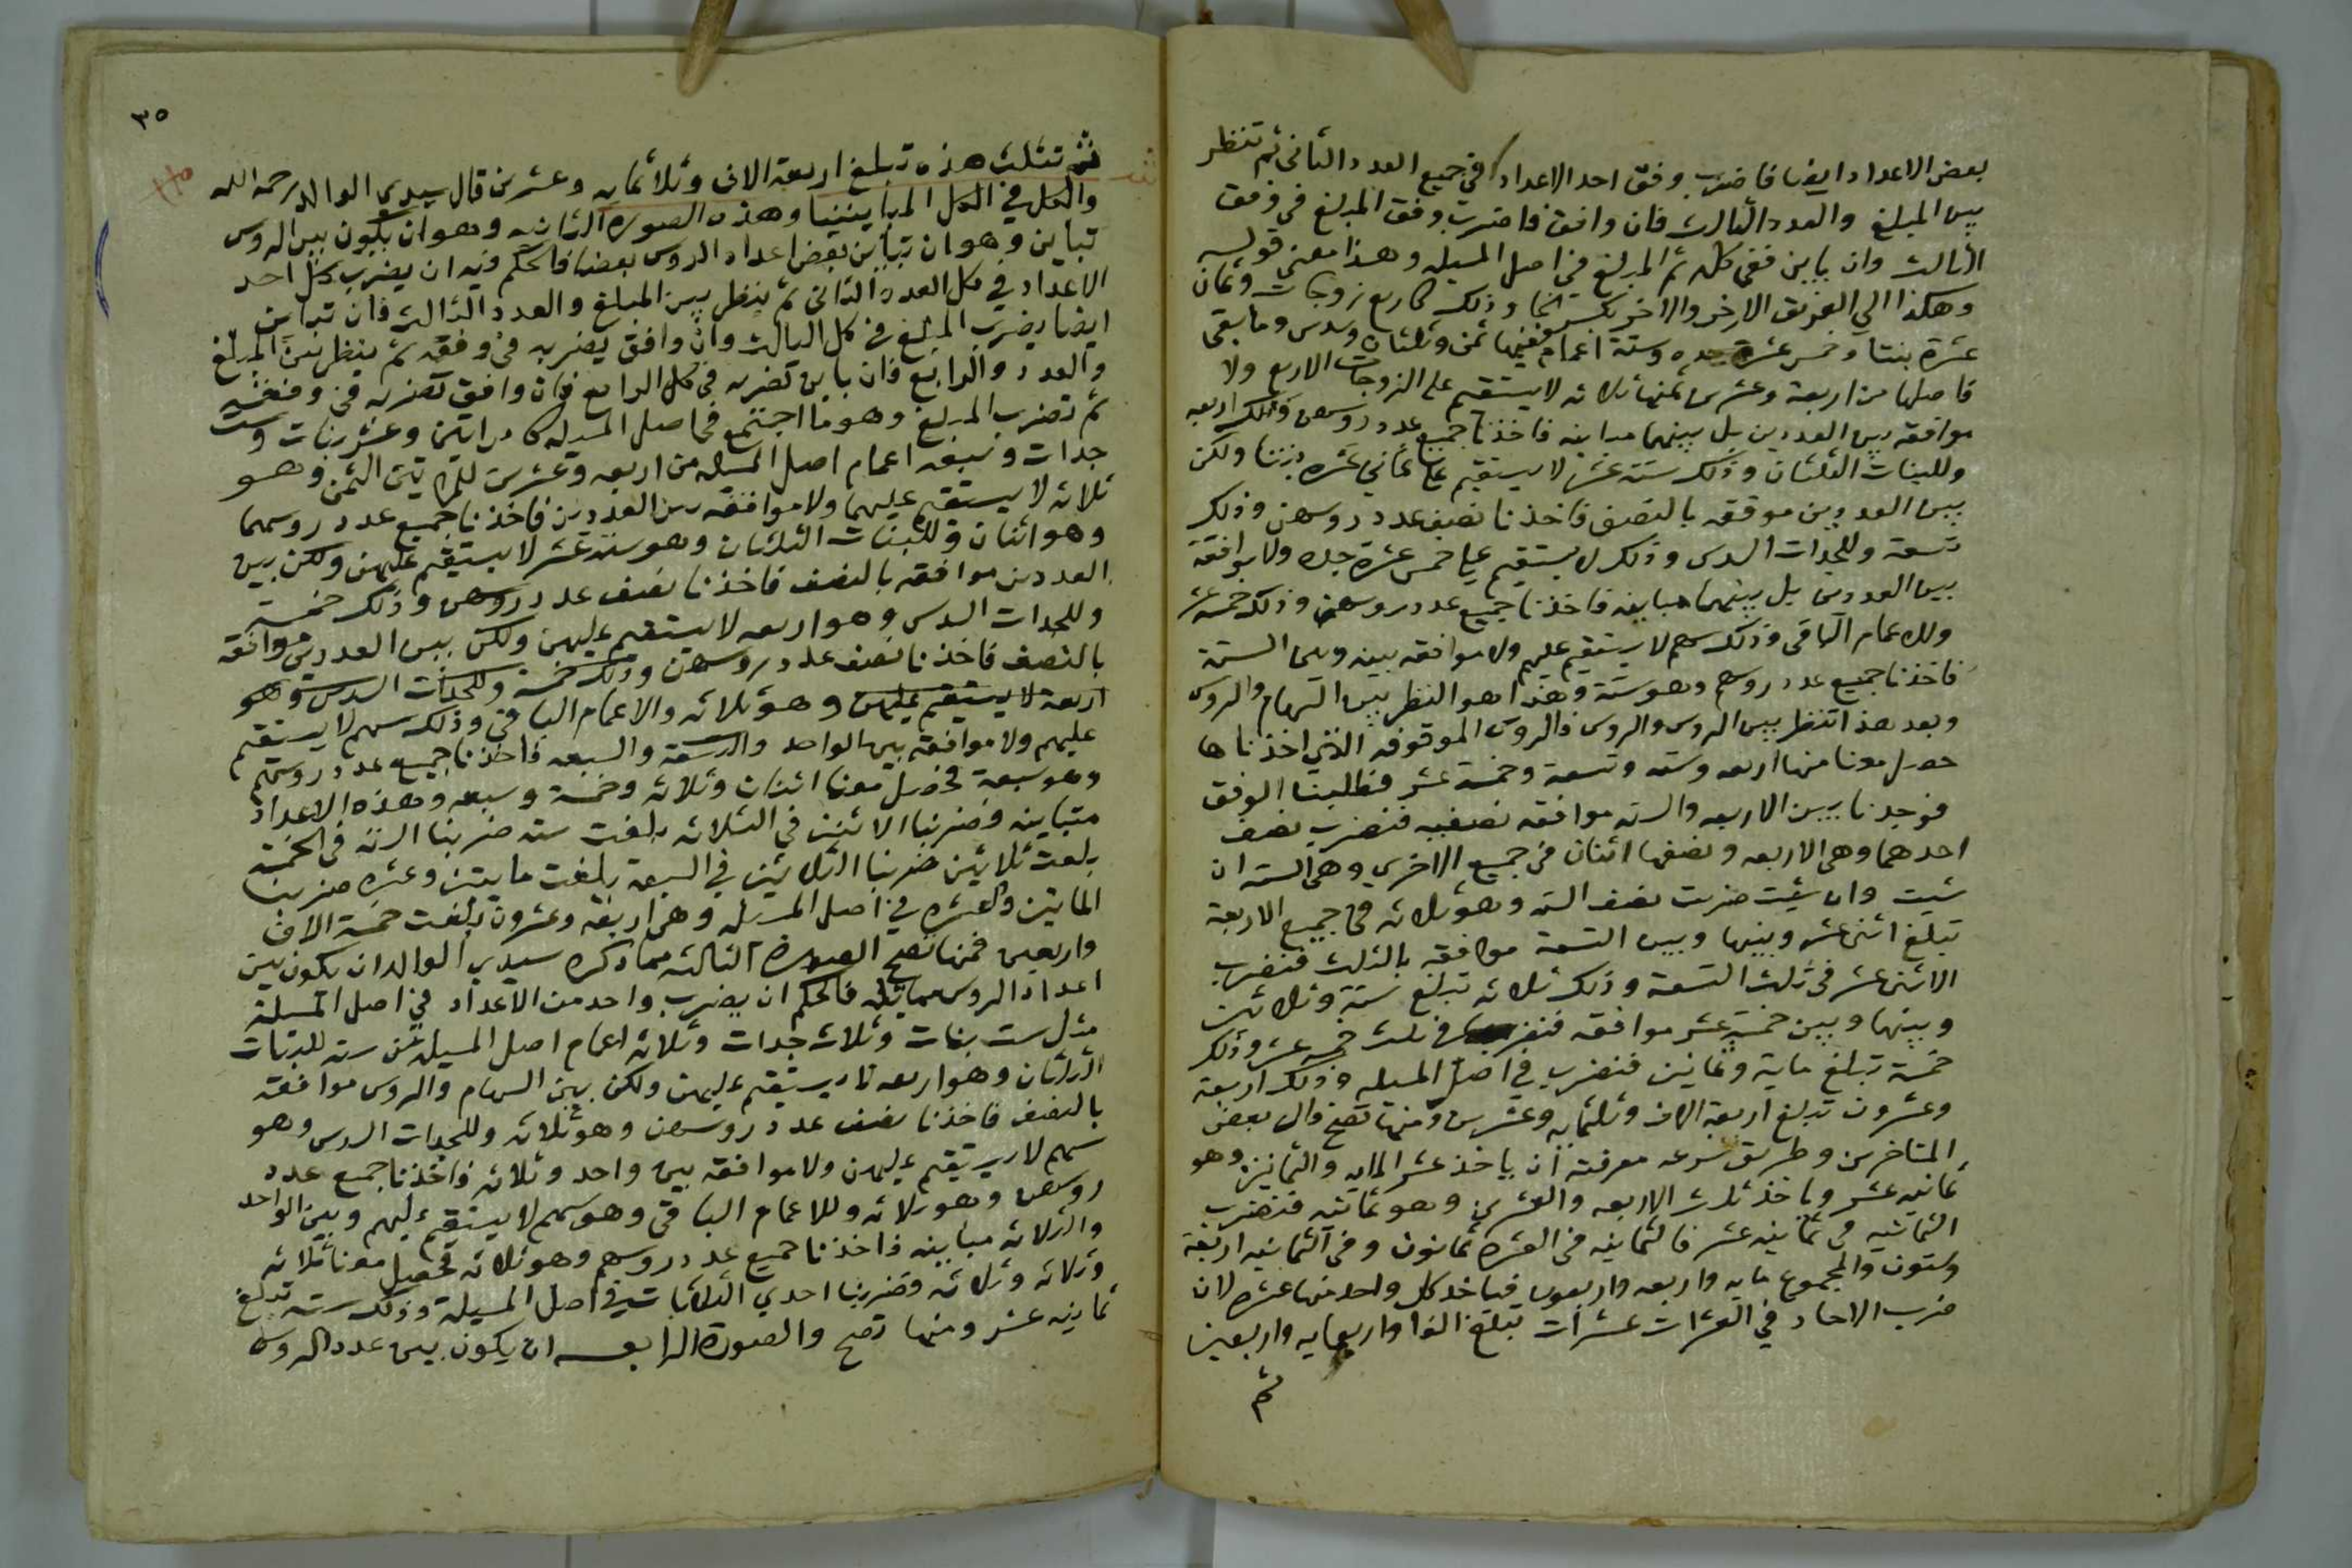 بعض الاعداد ايضا فاضرب وفق احد الاعداد في جميع العدد الثانى ثم تنظر
بين المبلغ والعدد الثالث فان وافق فاضرب وفق المبلغ في وفق
الثالث وان باين ففي كله ثم المبلغ في اصل المسيله وهذا معنى قوله
وهكذا الي الفريق الاخر والاخر وذلك كاربع زوجات وثمان
عشرة بنتا وخمس عشرة جده وستة اعمام ففيها ثمن وثلثان وسدس وما بقى
فاصلها من اربعة وعشرين ثمنها ثلاثه لا يستقيم على الزوجات الاربع ولا
موافقه بين العددين بل بينهما مباينه فاخذنا جميع عدد روسهن وذلك اربعه
وللبنات الثلثان وذلك ستة عشر لا يستقيم على ثماني عشره بنتا ولكن
بين العددين موفقه بالنصف فاخذنا نصف عدد روسهن وذلك
تسعة وللجدات السدس وذلك لا يستقيم على خمس عشرة جده ولا موافقة
بين العددين بل بينهما مباينه فاخذنا جميع عدد روسهن وذلك خمسة عشر
وللاعمام الباقي وذلك سهم لا يستقيم عليهم ولا موافقه بينه وبين الستة
فاخذنا جميع عدد روسهم وهو ستة وهذا هو النظر بين السهام والروس
وبعد هذا تنظر بين الروس والروس فالروس الموقوفه الذي اخذناها
حصل معنا منها اربعه وسته وتسعة وخمسة عشر فطلبنا الوفق
فوجدنا بين الاربعه والسته موافقه نصفيه فنضرب نصف
احدهما وهي الاربعه ونصفها اثنان في جميع الاخري وهي الستة ان
شيت وان شيت ضربت نصف الستة وهو ثلاثه في جميع الاربعة
تبلغ اثنى عشر وبينها وبين التسعة موافقه بالثلث فنضرب
الاثنى عشر في ثلث التسعة وذلك ثلاثه تبلغ ستة وثلاثين
وبينها وبين خمسة عشر موافقه فنضربها في ثلث خمسه عشر وذلك
خمسة تبلغ ماية وثمانين فنضرب في اصل المسيله وذلك اربعة
وعشرون تبلغ اربعة الاف وثلثمايه وعشرين ومنها تصح قال بعض
المتاخرين وطريق سرعه معرفته ان ياخذ عشر المايه والثمانين وهو
ثمانيه عشر وياخذ ثلث الاربعه والعشرين وهو ثمانيه فنضرب
الثمانيه في ثمانيه عشر فالثمانيه في العشره ثمانون وفي الثمانيه اربعة
وستون والمجموع مايه واربعه واربعون فياخذ كل واحد منها عشره لان
ضرب الاحاد في العشرات عشرات تبلغ الفا واربعمايه واربعين
ثم
٣٥
ثم تثلث هذه تبلغ اربعة الاف وثلاثمايه وعشرين قال سيدي الوالد رحمه الله
والكل في الكل المباينينا وهذه الصوره الثانيه وهو ان يكون بين الروس
تباين وهو ان تباين بعض اعداد الروس بعضا فالحكم فيه ان يضرب كل احد
الاعداد في كل العدد الثانى ثم ينظر بين المبلغ والعدد الثالث فان تباين
ايضا يضرب المبلغ في كل الثالث وان وافق يضربه في وفقه ثم ينظر بين المبلغ
والعدد والرابع فان باين تضربه في كل الرابع وان وافق تضربه في وفقه
ثم تضرب المبلغ وهو ما اجتمع في اصل المسيله كامراتين وعشر بنات وست
جدات وسبعه اعمام اصل المسيله من اربعه وعشرين للمراتين الثمن وهو
ثلاثه لا يستقيم عليهما ولا موافقه بين العددين فاخذنا جميع عدد روسهما
وهو اثنان وللبنات الثلثان وهو ستة عشر لا يستقيم عليهن ولكن بين
العددين موافقه بالنصف فاخذنا نصف عدد روسهن وذلك خمسة
وللجدات السدس وهو اربعه لا يستقيم عليهن ولكن بين العددين موافقه
بالنصف فاخذنا نصف عدد روسهن وذلك خمسة وللجدات السدس وهو
اربعة لا يستقيم عليهن وهو ثلاثه والاعمام الباقي وذلك سهم لا يستقيم
عليهم ولا موافقة بين الواحد والسبعه فاخذنا جميع عدد روسهم
وهو سبعة فحصل معنا اثنان وثلاثه وخمسة وسبعه وهذه الاعداد
متباينه فضربنا الاثنين في الثلاثه بلغت سته ضربنا الستة في الخمسة
بلغت ثلاثين ضربنا الثلاثين في السبعة بلغت مايتين وعشره ضربنا
المايتين والعشره في اصل المسيله وهي اربعة وعشرون بلغت خمسة الاف
واربعين فمنها تصح الصورة الثالثه مما ذكره سيدي الوالد ان يكون بين
اعداد الروس مماثله فالحكم ان يضرب واحد من الاعداد في اصل المسيلة
مثل ست بنات وثلاث جدات وثلاثه اعمام اصل المسيله من سته للبنات
الثلثان وهو اربعه لا يستقيم عليهن ولكن بين السهام والروس موافقه
بالنصف فاخذنا نصف عدد روسهن وهو ثلاثه وللجدات السدس وهو
سهم لا يستقيم عليهن ولا موافقه بين واحد وثلاثه فاخذنا جميع عدد
روسهن وهو ثلاثه وللاعمام الباقي وهو سهم لا يستقيم عليهم وبين الواحد
والثلاثه مباينه فاخذنا جميع عدد روسهم وهو ثلاثه فحصل معنا ثلاثه
وثلاثه وثلاثه فضربنا احدي الثلاثات في اصل المسيلة وذلك سته تبلغ
ثمانيه عشر ومنها تصح والصورة الرابعه ان يكون بين عدد الروس